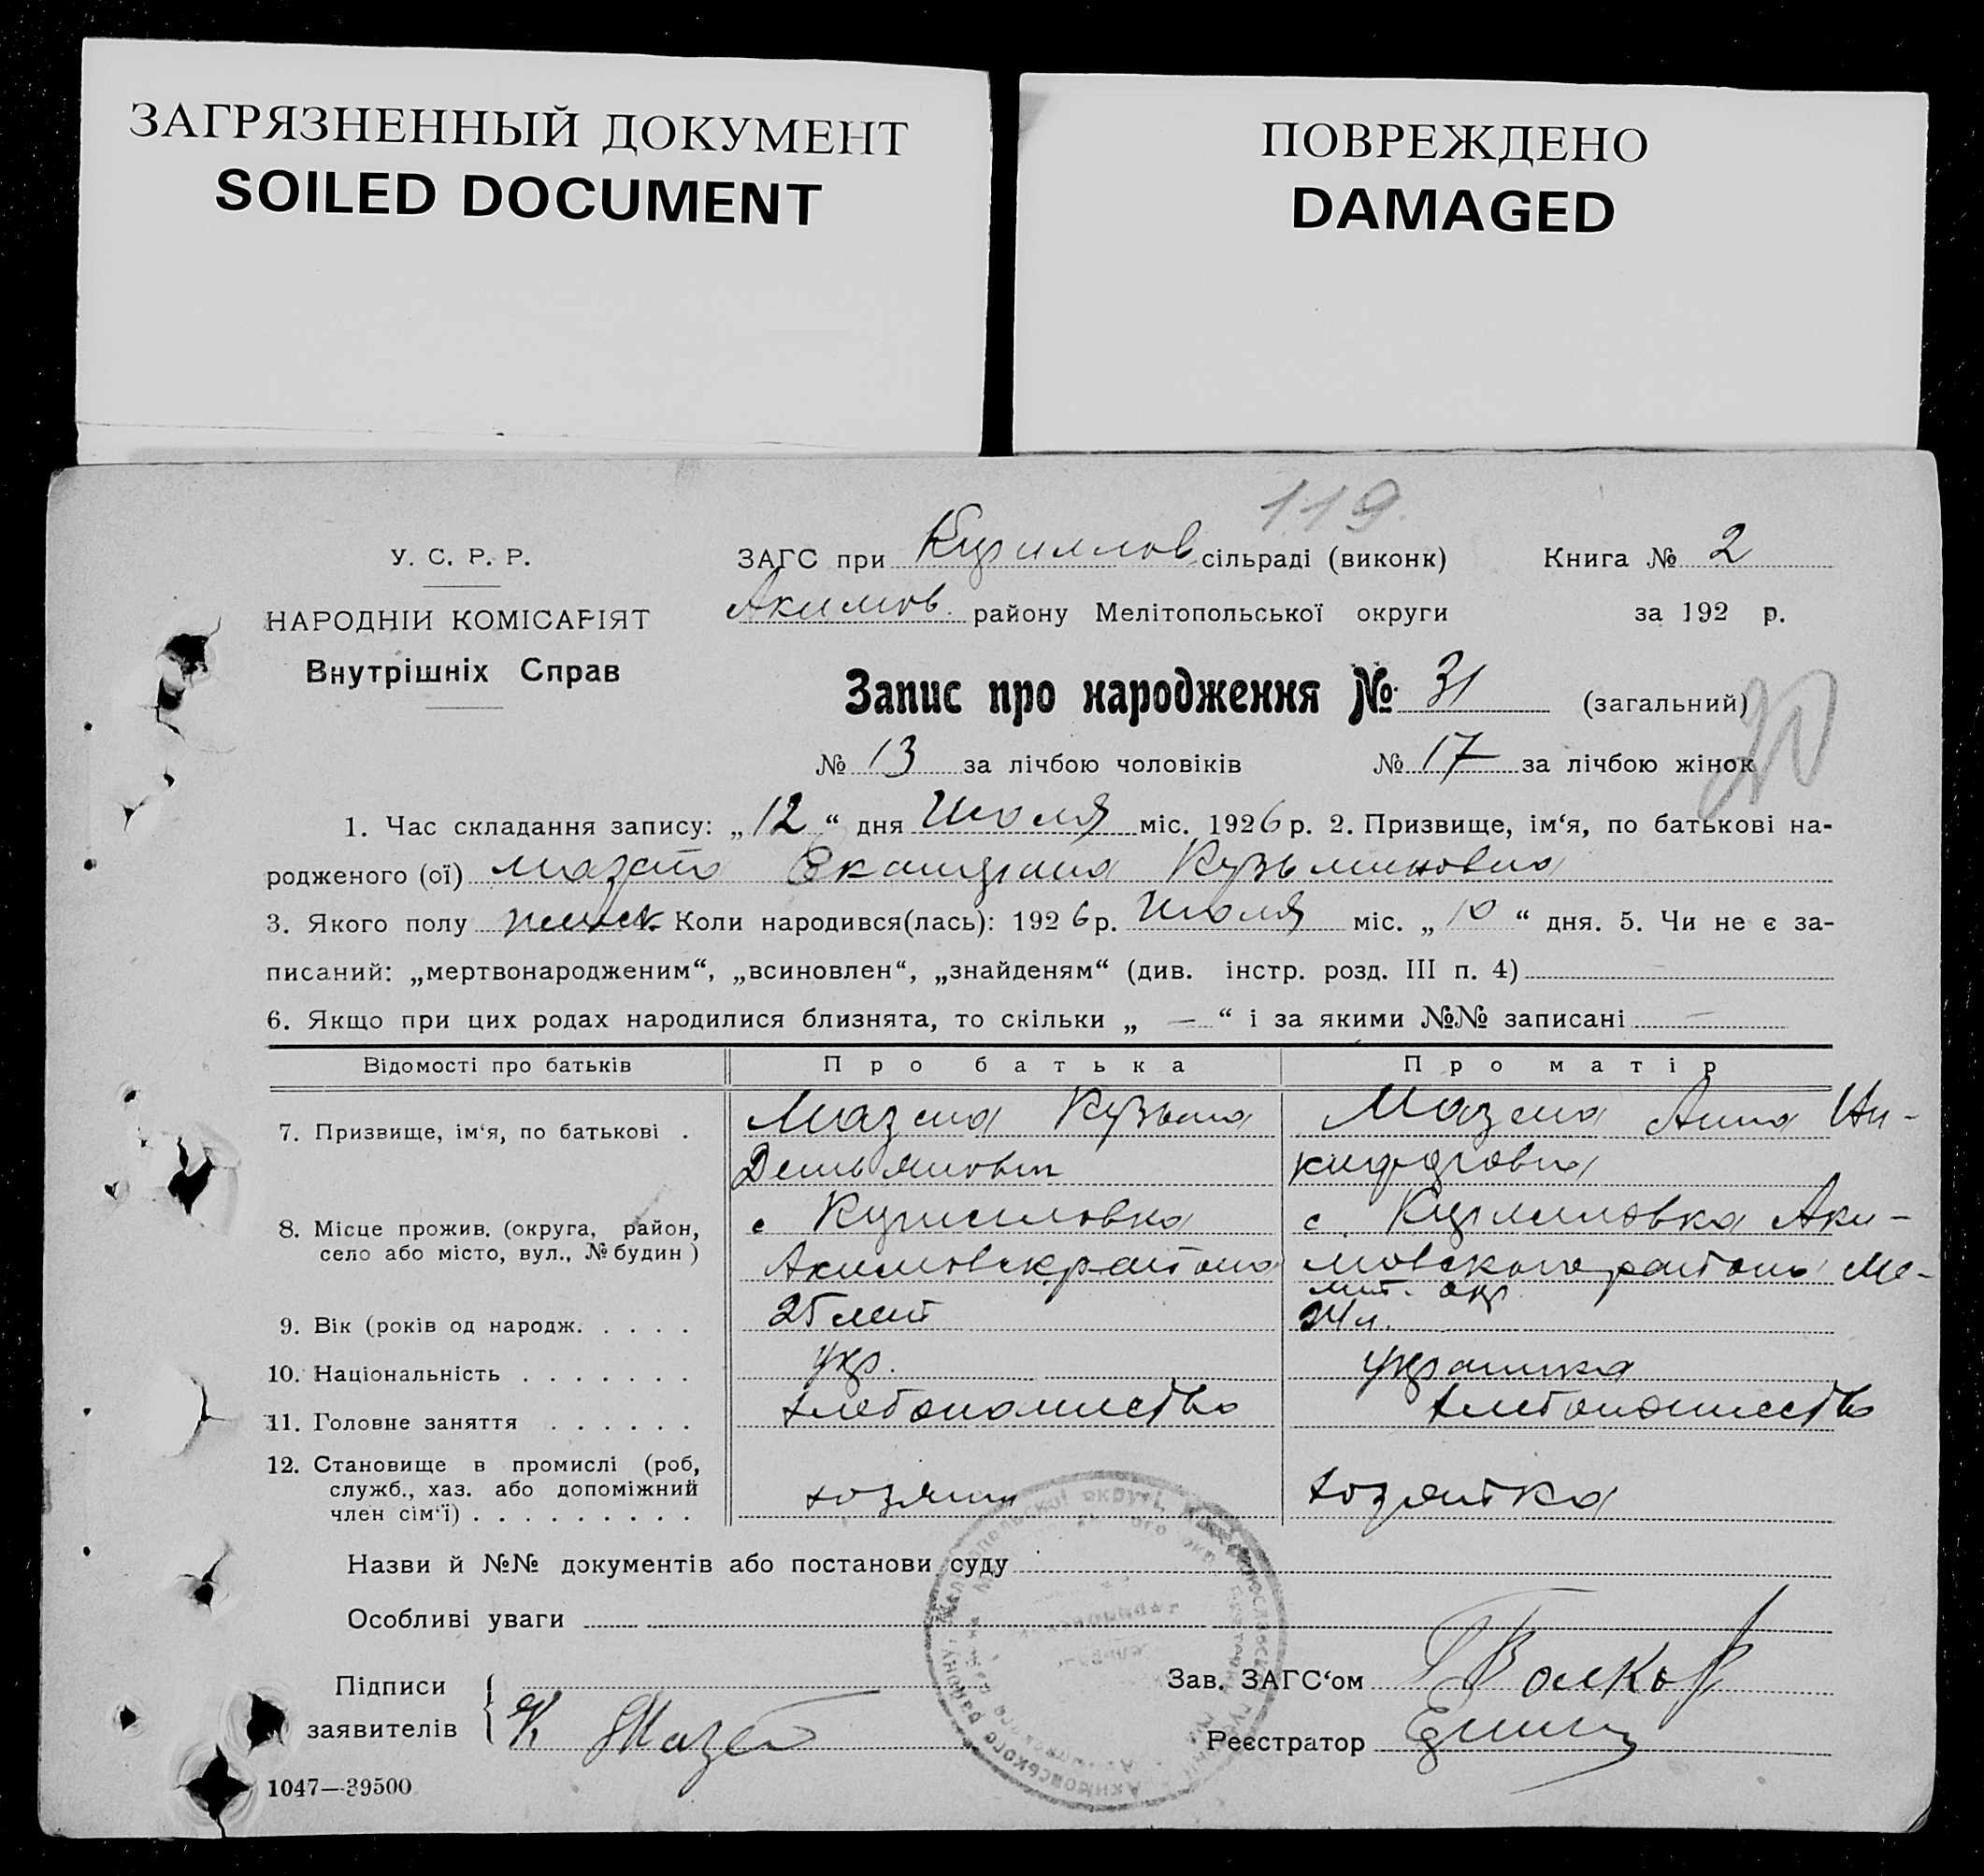 ЗАГРЯЗНЕННЫЙ ДОКУМЕНТ
SOILED DOCUMENT
ПОВРЕЖДЕНО
DAMAGED
119
У. С. Р. Р.
НАРОДНІЙ КОМІСАРІЯТ
Внутрішніх Справ
ЗАГС при Кириллов сільраді (виконк) Книга № 2
Акимов. району Мелітопольської округи за 192 р.
Запис про народження № 31 (загальний)
№ 13 за лічбою чоловіків № 17 за лічбою жінок
1. Час складання запису: „12“ дня Июля міс. 1926 р. 2. Призвище, ім‘я, по батькові на-
родженого (ої) Екатерина Кузьминовна
3. Якого полу женск. Коли народився(лась): 1926 р. Июля міс. „10“ дня. 5. Чи не є за-
писаний: „мертвонародженим“, „всиновлен“, „знайденям“ (див. інстр. розд. III п. 4)
6. Якщо при цих родах народилися близнята, то скільки „ — “ і за якими №№ записані —
Відомості про батьків Про батька Про матір
7. Призвище, ім‘я, по батькові . Кузьма Анна Ни-
Демьянович кифоровна
8. Місце прожив. (округа, район, с Кирилловка с Кирилловка Аки-
село або місто, вул., № будин) Акимовск района мовского района Ме-
лит. окр.
9. Вік (років од народж. . . . . 25 лет 24 л.
10. Національність . . . . . . . укр. украинка
11. Головне заняття . . . . . . хлебопашество хлебопашество
12. Становище в промислі (роб,
служб., хаз. або допоміжний хозяин хозяйка
член сім‘ї) . . . . . . . . . .
Назви й №№ документів або постанови суду
Особливі уваги
Підписи
заявителів К
Зав. ЗАГС‘ом Волков
Реєстратор
1047—39500